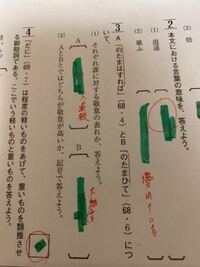 (2) 効
2 本文における言葉の意味を、答えよ。
(1) 逍遥
(2) 堪ふ
優れている
3 A「のたまはすれば」(68・4)とB「のたまひて」(68・6)につ
いて、
(1) それぞれ誰に対する敬意の表れか、答えよ。
A
B
(2) AとBとではどちらが敬意が高いか、記号で答えよ。
4 「だに」(69・7)は程度の軽いものをあげて、重いものを類推させ
る副助詞である。ここでいう軽いものと重いものを答えよ。